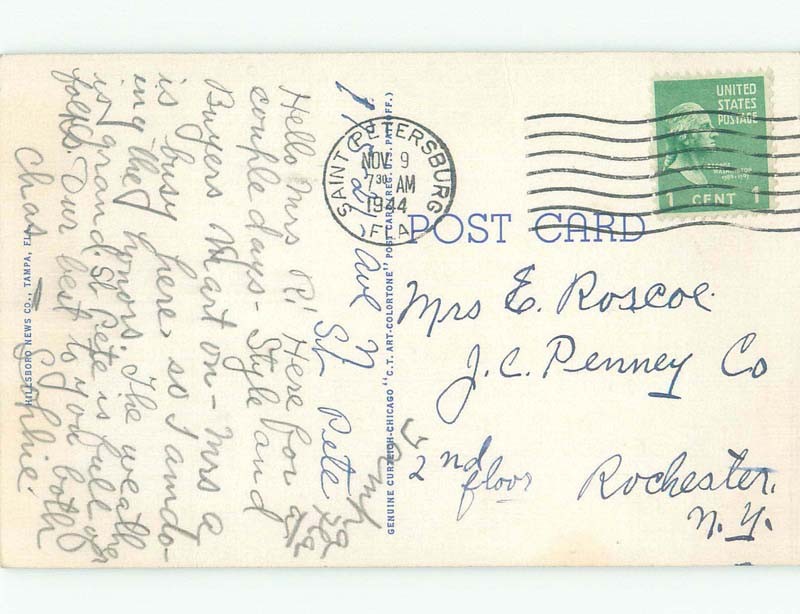 Hello Mrs R! Here for a
couple days - Style and
Buyers Mart on - Mrs a
is busy here, so I am do-
ing the honors. The weather
is grand. St. Pete is full of
folks. Our best to you both
Chas Sophie.
HILLSBORO NEWS CO., TAMPA, FLA.
Ave N
St Pete
GENUINE CURTEICH-CHICAGO "C.T. ART-COLORTONE" POST CARD (REG. U.S. PAT. OFF.)
SAINT PETERSBURG
NOV 9
7 30 AM
1944
FLA.
UNITED
STATES
POSTAGE
1 CENT 1
POST CARD
Mrs E. Roscoe
J.C. Penney Co
2nd floor
Rochester,
N.Y.